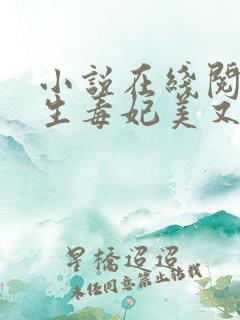 小说在线阅
生毒妃美又
星橋迢迢
未经同意禁止转载